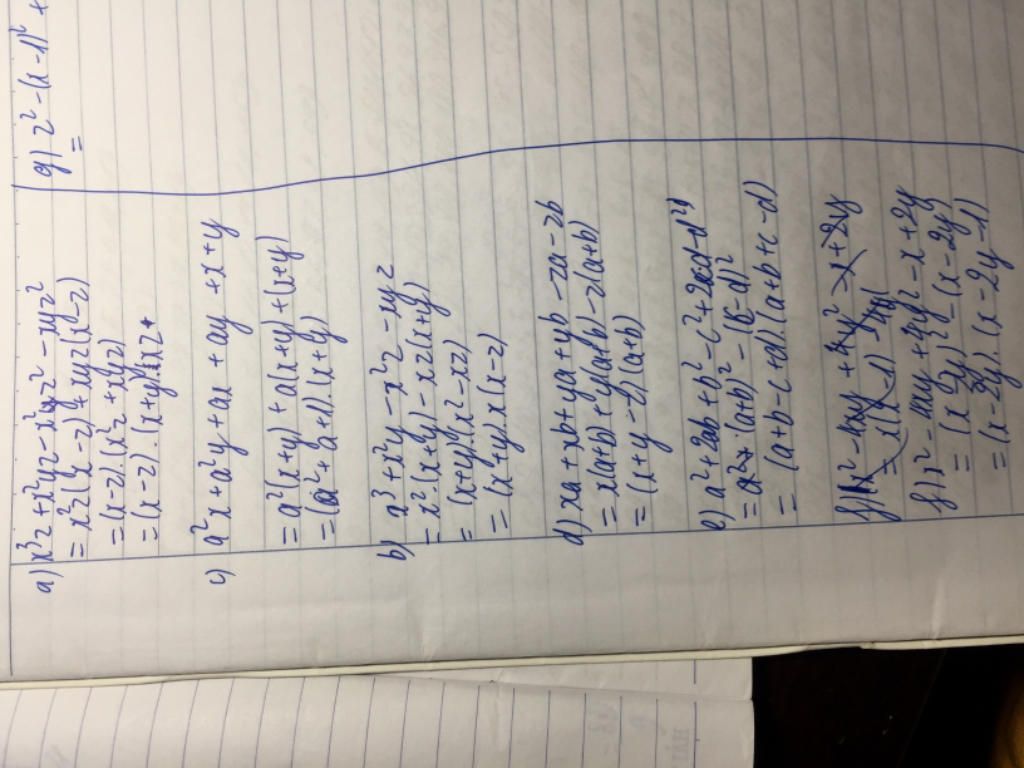 a) x³z + x²yz - x²z² - xyz²
= x²z(x - z) + xyz(x - z)
= (x - z).(x²z + xyz)
= (x - z).(x + y)(xz +
c) a²x + a²y + ax + ay + x + y
= a²(x+y) + a(x+y) + (x+y)
= (a² + a + 1).(x + y)
b) a³ + x²y - x²z - xyz
= x².(x+y) - xz(x+y)
= (x+y).(x² - xz)
= (x+y) x (x - z)
d) xa + xb + ya + yb - za - zb
= x(a+b) + y(a+b) - z(a+b)
= (x + y - z)(a+b)
e) a² + 2ab + b² - c² + 2cd - d²
= (a+b)² - (c - d)²
= (a+b - c + d).(a+b+c - d)
f) x² - 4xy + 4y² - x + 2y
= x(x - 1) -
f) x² - 4xy + 4y² - x + 2y
= (x - 2y)² - (x - 2y)
= (x - 2y).(x - 2y - 1)
g) z² - (x - 1)² +
=